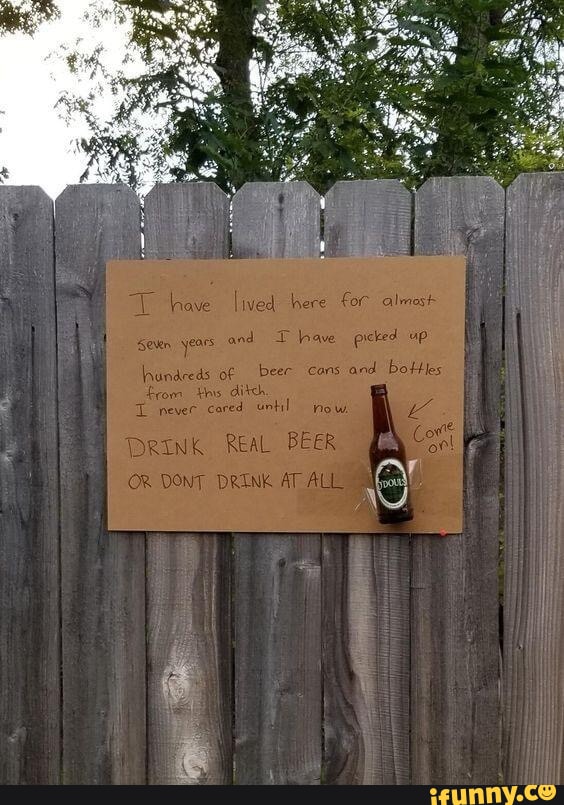 I have lived here for almost
seven years and I have picked up
hundreds of beer cans and bottles
from this ditch.
I never cared until now.
DRINK REAL BEER
OR DONT DRINK AT ALL
Come
on!
O'DOUL'S
ifunny.co